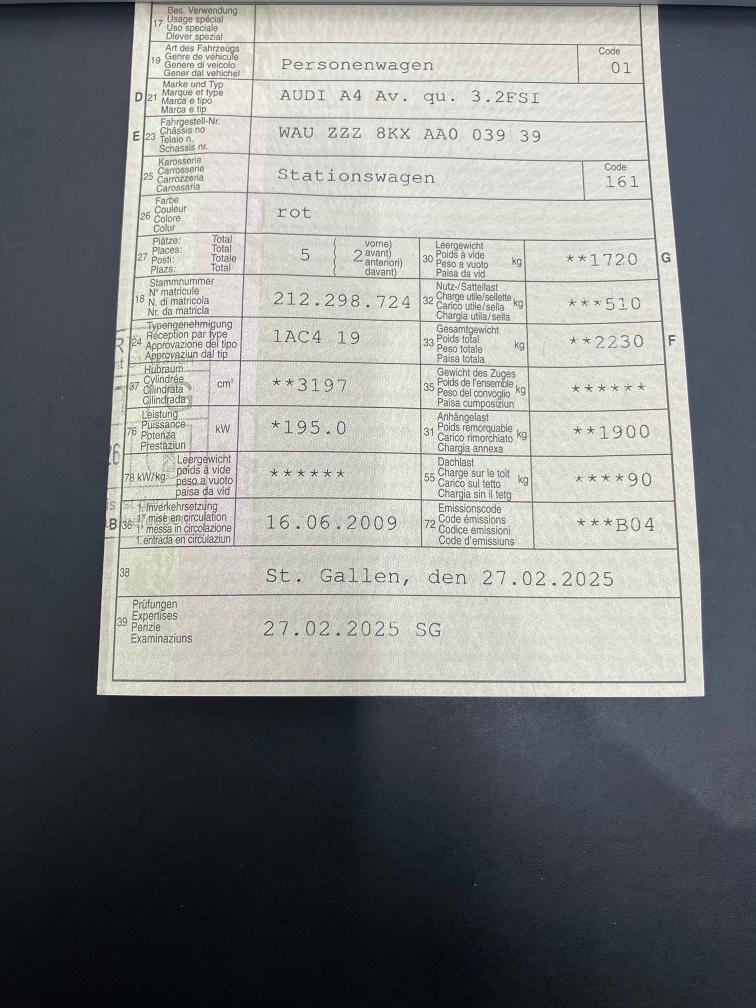 Bes. Verwendung
17 Usage spécial
Uso speciale
Diever spezial
Art des Fahrzeugs
19 Genre de véhicule
Genere di veicolo
Gener dal vehichel
Personenwagen
Code
01
Marke und Typ
D 21 Marque et type
Marca e tipo
Marca e tip
AUDI A4 Av. qu. 3.2FSI
Fahrgestell-Nr.
E 23 Châssis no
Telaio n.
Schassis nr.
WAU ZZZ 8KX AA0 039 39
Karosserie
25 Carrosserie
Carrozzeria
Carossaria
Stationswagen
Code
161
Farbe
26 Couleur
Colore
Colur
rot
Plätze: Total
27 Places: Total
Posti: Totale
Plazs: Total
5
2 vorne)
avant)
anteriori)
davant)
Leergewicht
30 Poids à vide kg
Peso a vuoto
Paisa da vid
**1720 G
Stammnummer
18 N° matricule
N. di matricola
Nr. da matricla
212.298.724
Nutz-/Sattellast
32 Charge utile/sellette kg
Carico utile/sella
Chargia utila/sella
***510
Typengenehmigung
24 Réception par type
Approvazione del tipo
Approvaziun dal tip
1AC4 19
Gesamtgewicht
33 Poids total kg
Peso totale
Paisa totala
**2230 F
Hubraum
37 Cylindrée cm³
Cilindrata
Cilindrada
**3197
Gewicht des Zuges
35 Poids de l'ensemble kg
Peso del convoglio
Paisa cumposiziun
******
Leistung
76 Puissance kW
Potenza
Prestaziun
*195.0
Anhängelast
31 Poids remorquable kg
Carico rimorchiato
Chargia annexa
**1900
Leergewicht
78 kW/kg poids à vide
peso a vuoto
paisa da vid
******
Dachlast
55 Charge sur le toit kg
Carico sul tetto
Chargia sin il tetg
****90
1. Inverkehrsetzung
B 36 1re mise en circulation
1a messa in circolazione
1. entrada en circulaziun
16.06.2009
Emissionscode
72 Code émissions
Codice emissioni
Code d'emissiuns
***B04
38
St. Gallen, den 27.02.2025
Prüfungen
39 Expertises
Perizie
Examinaziuns
27.02.2025 SG